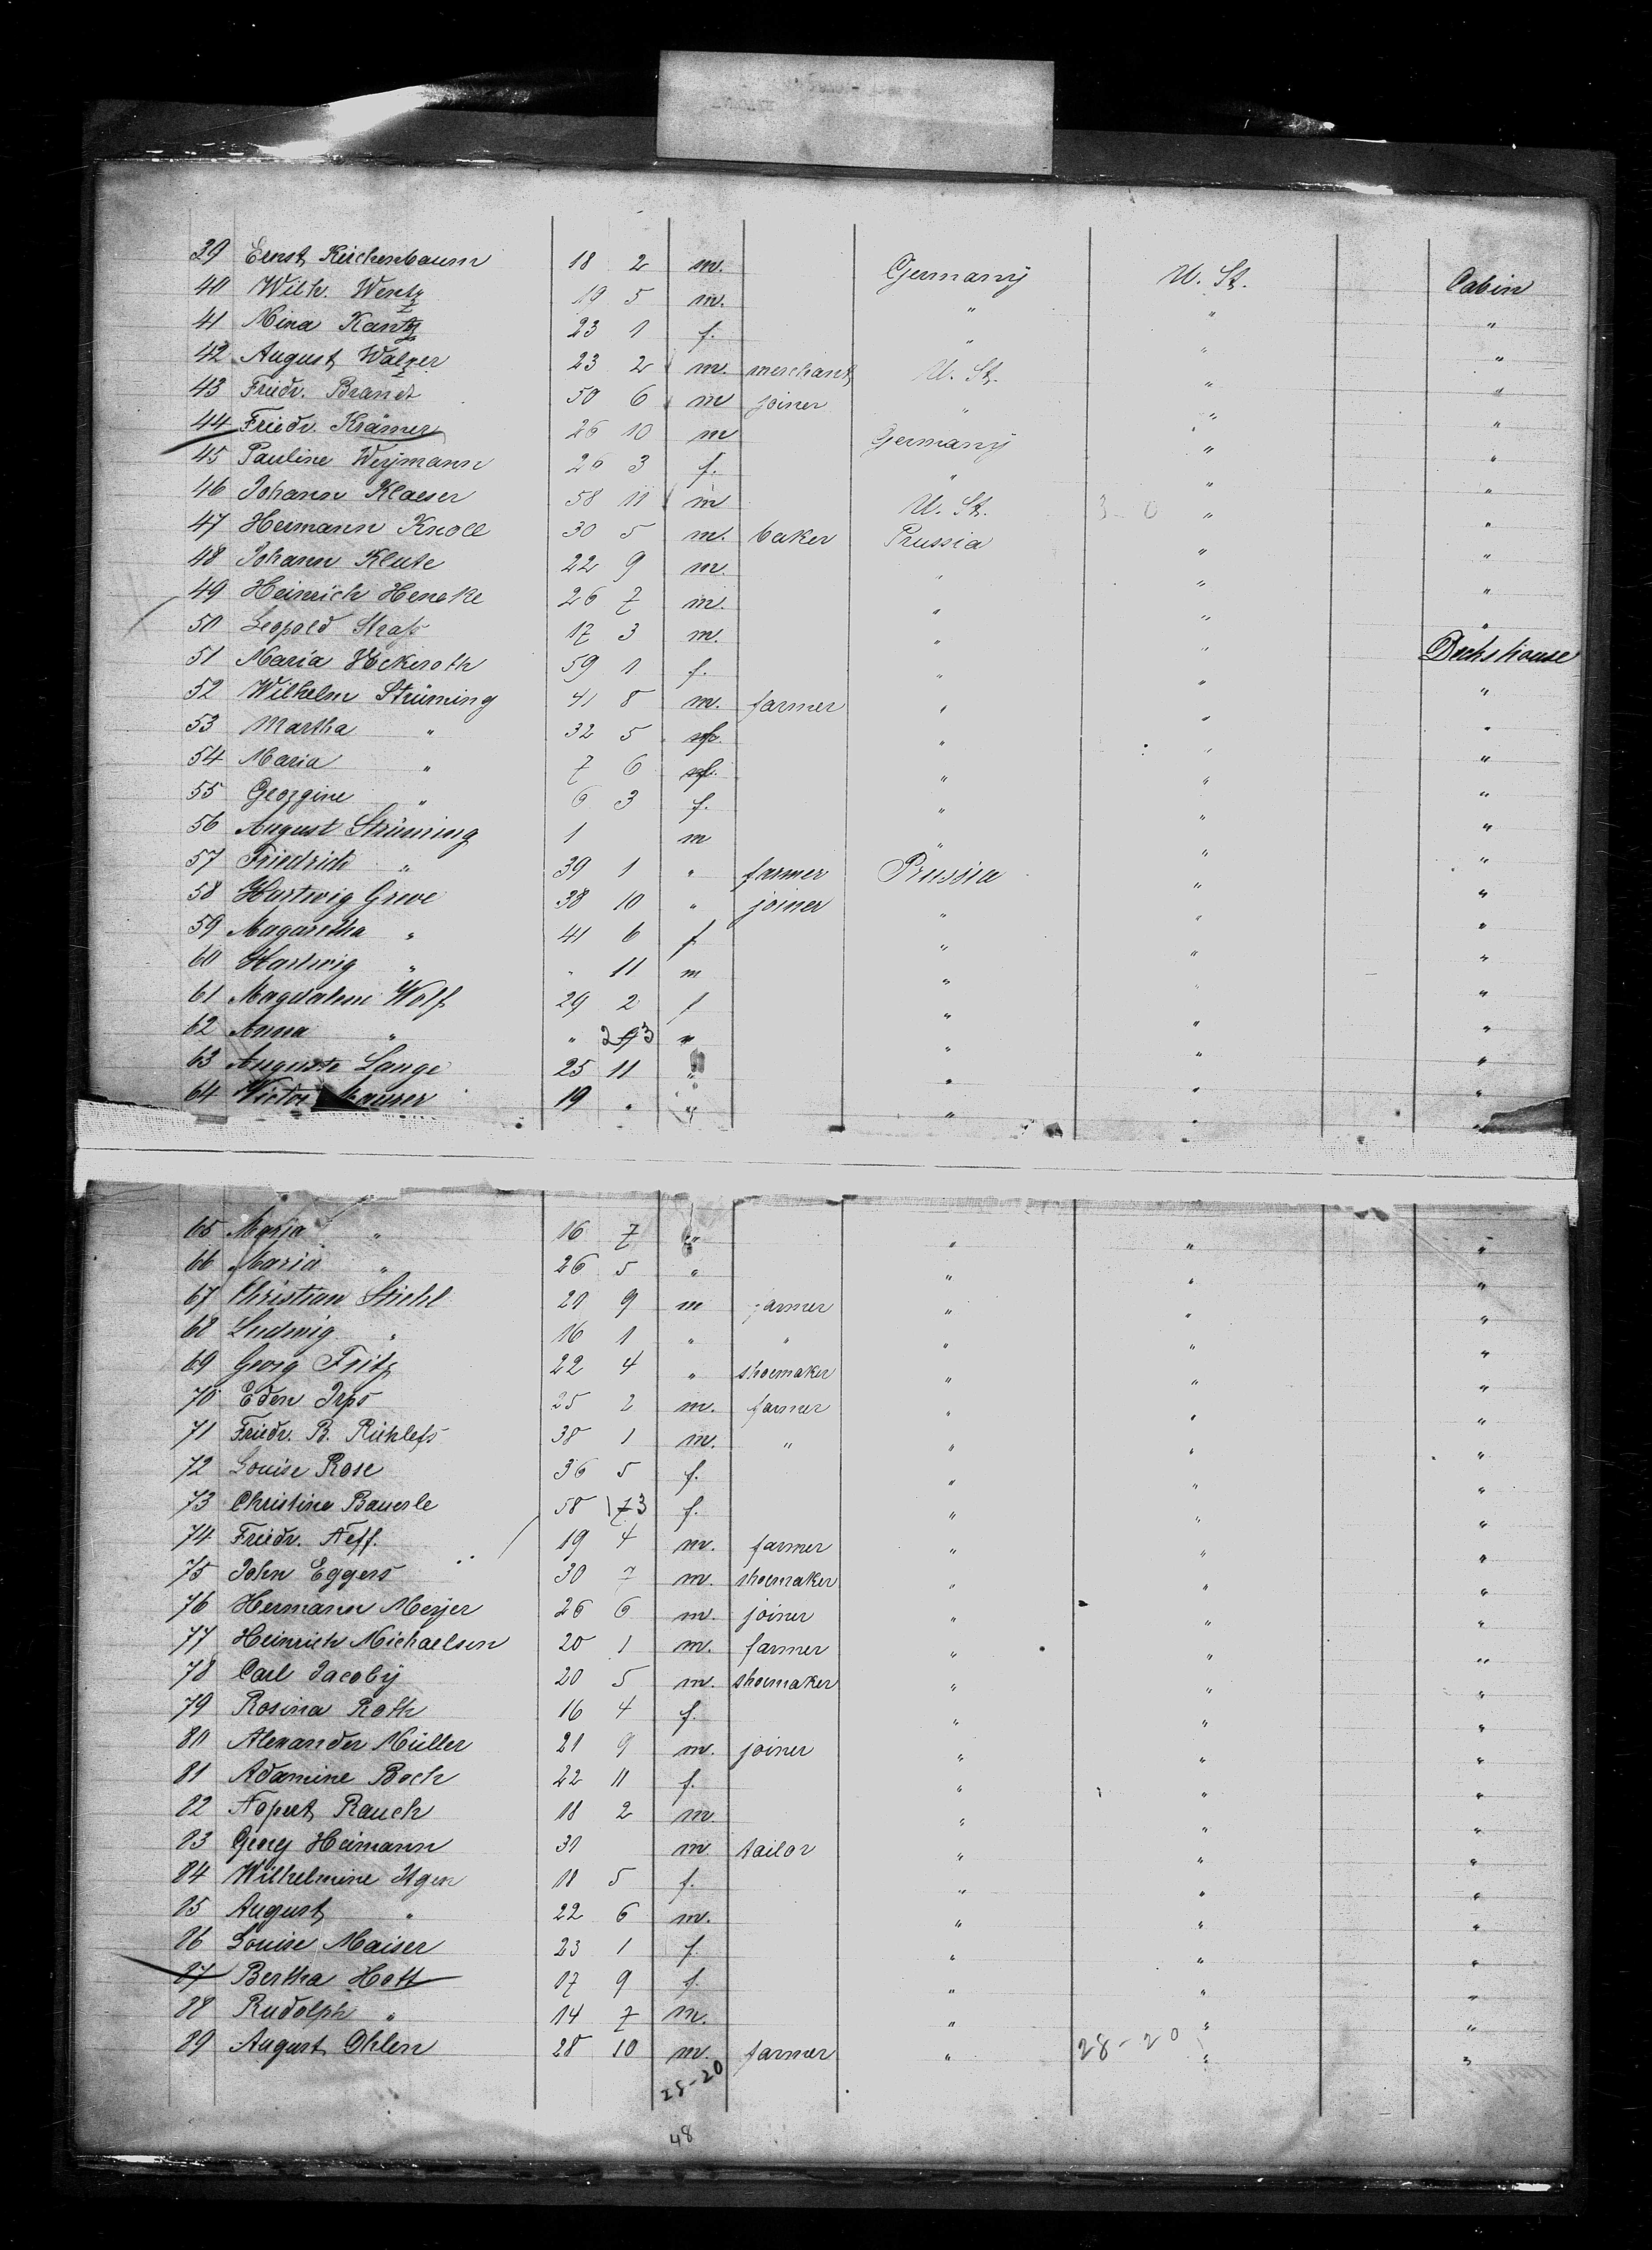 39 Ernst Kirchenbaum 18 2 m. Germany U. St. Cabin
40 Wilh. Wentz 19 5 m. " " "
41 Mina Kantz 23 1 f. " " "
42 August Walzer 23 2 m. merchant U. St. " "
43 Friedr. Brandt 50 6 m joiner " " "
44 Friedr. Krämer 26 10 m Germany " "
45 Pauline Weymann 26 3 f. " " "
46 Johann Klaeser 58 11 m U. St. 3-0 " "
47 Hermann Knoll 30 5 m. baker Prussia " "
48 Johann Klute 22 9 m. " " "
49 Heinrich Heneke 26 7 m. " " "
50 Leopold Straß 17 3 m. " " Deckshouse
51 Maria 59 1 f. " " "
52 Wilhelm Strüming 41 8 m. farmer " " "
53 Martha " 32 5 f. " " "
54 Maria " 7 6 f. " " "
55 Georgine " 6 3 f. " " "
56 August Strüming 1 m " " "
57 Friedrich " 39 1 " farmer Prussia " "
58 Hartwig Greve 38 10 " joiner " " "
59 Magaretha " 41 6 f " " "
60 Hartwig " " 11 m " " "
61 Magdalene Wolf 29 2 f " " "
62 Anna " " 3 " " " "
63 Auguste Lange 25 11 " " " "
64 Victor Maurer 19 " " " " "
65 Maria " 16 7 " " " "
66 Maria " 26 5 " " " "
67 Christian Stiehl 21 9 m farmer " " "
68 Ludwig " 16 1 " " " " "
69 Georg Fritz 22 4 " shoemaker " " "
70 Eden Irps 25 2 m. farmer " " "
71 Friedr. B. Richlefs 38 1 m. " " " "
72 Louise Rose 36 5 f. " " "
73 Christine Bauerle 58 3 f. " " "
74 Friedr. Neff. 19 4 m. farmer " " "
75 John Eggers 30 7 m. shoemaker " " "
76 Hermann Meyer 26 6 m. joiner " " "
77 Heinrich Michaelsen 20 1 m. farmer " " "
78 Carl Jacoby 20 5 m. shoemaker " " "
79 Rosina Roth 16 4 f. " " "
80 Alexander Müller 21 9 m. joiner " " "
81 Adamine Boch 22 11 f. " " "
82 Rauch 18 2 m. " " "
83 Georg Heimann 31 m. tailor " " "
84 Wilhelmine Ilgen 18 5 f. " " "
85 August " 22 6 m. " " "
86 Louise Maiser 23 1 f. " " "
87 Bertha Hott 17 9 f. " " "
88 Rudolph " 14 7 m. " " "
89 August Ohlen 28 10 m. farmer " 28-20 " "
28-20
48